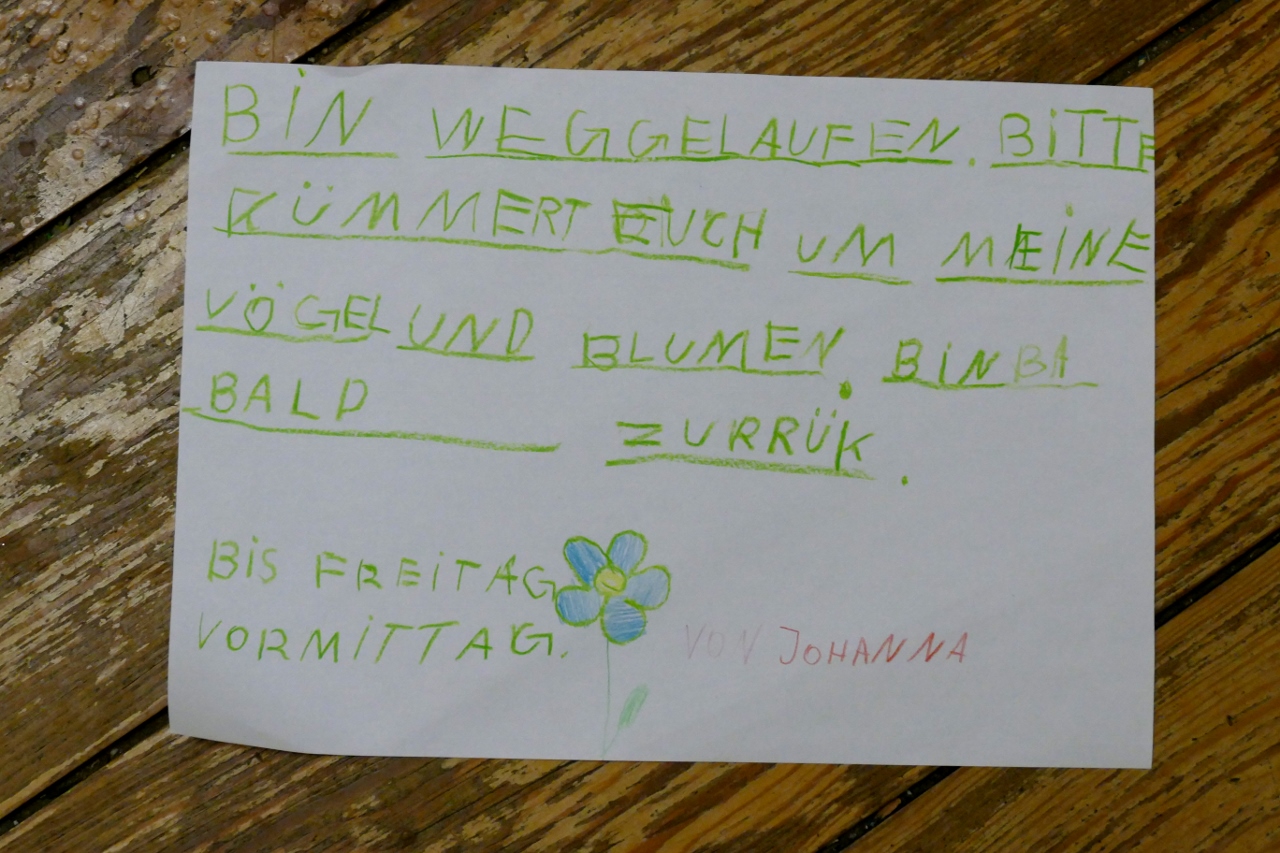 BIN WEGGELAUFEN. BITTE
KÜMMERT EUCH UM MEINE
VÖGEL UND BLUMEN. BIN BA
BALD ZURRÜK.
BIS FREITAG
VORMITTAG.
VON JOHANNA